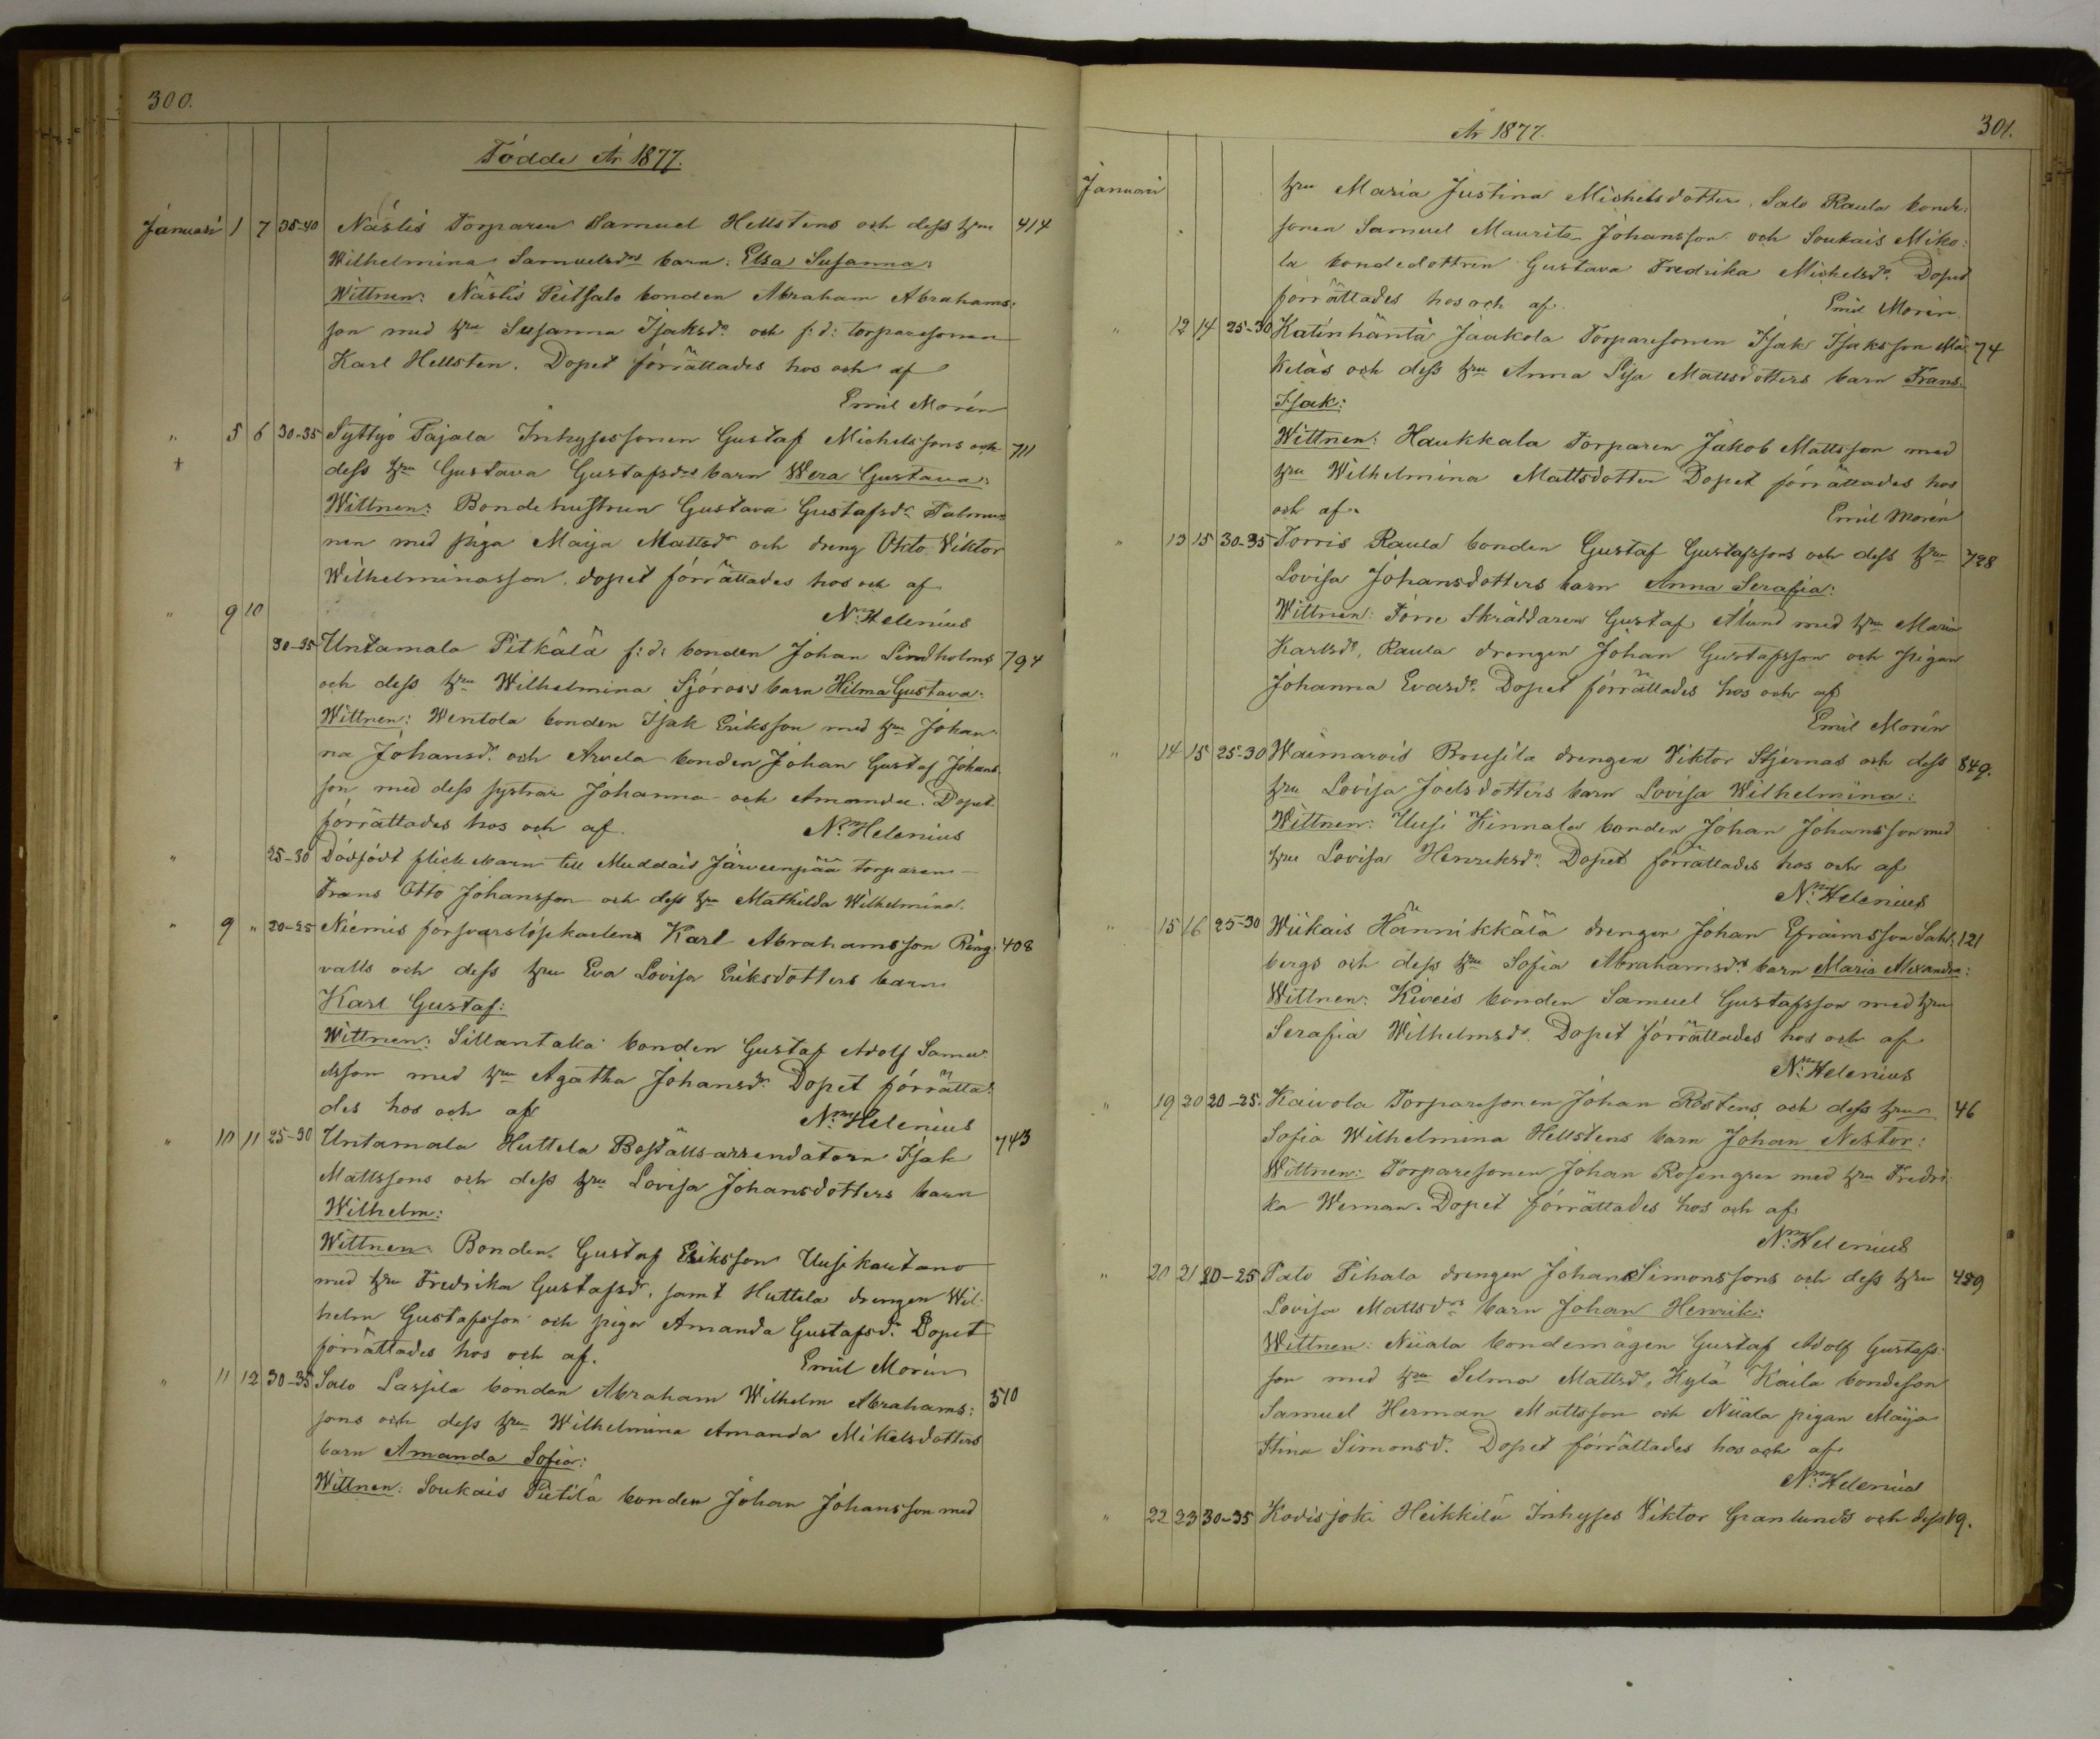 300.
Födde År 1877.
Januari 1 7 35-40 Nästis Torparen Samuel Hellstens och dess hru 414
Wilhelmina Samuelsdrs barn: Elsa Susanna:
Wittnen: Nästis Peitsalo bonden Abraham Abrahams:
son med hru Susanna Isaksdr och f: d: torparesonen
Karl Hellsten. Dopet förrättades hos och af
Emil Morén
" 5 6 30-35 Syttyö Pajala Inhysessonen Gustaf Michelssons och 711
+ dess hru Gustava Gustafsdrs barn Wera Gustava:
Wittnen: Bondehustrun Gustava Gustafsdr Talmu=
nen med piga Maija Mattsdr och dreng Okto Viktor
Wilhelminasson. dopet förrättades hos och af
N. Helenius
" 9 10
30-35 Untamala Pitkälä f: d: bonden Johan Lindholms 794
och dess hru Wilhelmina Sjöros's barn Hilma Gustava:
Wittnen: Wentola bonden Isak Eriksson med hru Johan=
na Johansdr och Arvela bonden Johan Gustaf Johans
son med dess systrar Johanna och Amanda. Dopet
förrättades hos och af. N. Helenius
" 25-30 Dödfödt flickebarn till Muddais Järvenpää torparen
Frans Otto Johansson och dess hru Mathilda Wilhelmina.
" 9 " 20-25 Niemis försvarslöskarlens Karl Abrahamsson Ring: 408
valls och dess hru Eva Lovisa Eriksdotters barn
Karl Gustaf:
Wittnen: Sillantaka bonden Gustaf Adolf Samu=
elsson med hru Agatha Johansdr Dopet förrätta=
des hos och af N. Helenius
" 10 11 25-30 Untamala Huttela Boställs-arrendatorn Isak 743
Mattssons och dess hru Lovisa Johansdotters barn
Wilhelm:
Wittnen: Bonden Gustaf Eriksson Uusikartano
med hru Fredrika Gustafsdr, samt Huttela drengen Wil=
helm Gustafsson och piga Amanda Gustafsdr. Dopet
förrättades hos och af. Emil Morén
" 11 12 30-35 Salo Lassila bonden Abraham Wilhelm Abrahams: 510
sons och dess hru Wilhelmina Amanda Mikelsdotters
barn Amanda Sofia:
Wittnen: Soukais Pietilä bonden Johan Johansson med
År 1877. 301.
Januari hru Maria Justina Michelsdotter, Salo Raula bonde:
sonen Samuel Maurits Johansson och Soukais Miko:
la bondedottren Gustava Fredrika Michelsdr. Dopet
förrättades hos och af Emil Morén.
" 12 14 25-30 Katinhäntä Jaakola Torparesonen Isak Isaksson Mä 74
keläs och dess hru Anna Lisa Mattsdotters barn Frans
Isak:
Wittnen: Haukkala Torparen Jakob Mattsson med
hru Wilhelmina Mattsdotter Dopet förrättades hos
och af. Emil Morén
" 13 15 30-35 Torris Raula bonden Gustaf Gustafssons och dess hru 728
Lovisa Johansdotters barn Anna Serafia:
Wittnen: Torre Skräddaren Gustaf Ålund med hru Maria
Karlsdr, Raula drengen Johan Gustafsson och Pigan
Johanna Evasdr. Dopet förrättades hos och af
Emil Morén
" 14 15 25-30 Waimarois Brusila drengen Viktor Stjernas och dess 849.
hru Lovisa Joelsdotters barn Lovisa Wilhelmina:
Wittnen: Uusi Hinnala bonden Johan Johansson med
hru Lovisa Henriksdr. Dopet förrättades hos och af
N. Helenius
" 15 16 25-30 Wiikais Hännikkälä drengen Johan Efraimsson Sahl: 121
bergs och dess hru Sofia Abrahamsdrs barn Maria Alexandra:
Wittnen: Kiveis bonden Samuel Gustafsson med hru
Serafia Wilhelmsdr. Dopet förrättades hos och af
N. Helenius
" 19 20 20-25. Kaivola Torparesonen Johan Rostens och dess hru 46
Sofia Wilhelmina Hellstens barn Johan Nestor:
Wittnen: Torparesonen Johan Rosengren med hru Fredri:
ka Weman. Dopet förrättades hos och af
N. Helenius
" 20 21 20-25 Palo Pihala drengen Johan Simonssons och dess hru 459
Lovisa Mattsdrs barn Johan Henrik:
Wittnen: Niiala bondemågen Gustaf Adolf Gustafs:
son med hru Selma Mattsdr, Hylä Kaila bondeson
Samuel Herman Mattsson och Niiala pigan Maija
Stina Simonsdr. Dopet förrättades hos och af
N. Helenius
" 22 23 30-35 Kodisjoki Heikkilä Inhyses Viktor Granlunds och dess 19.